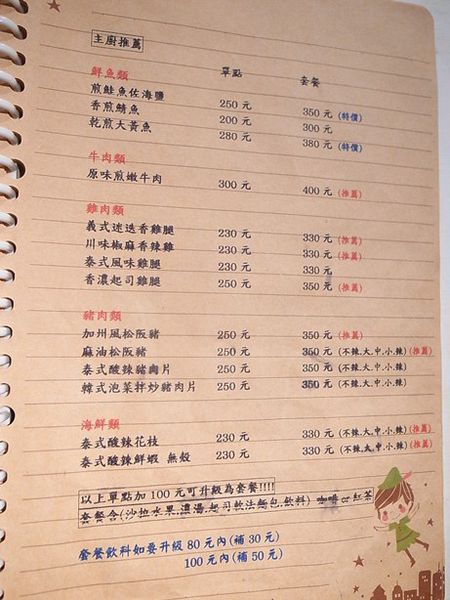 主廚推薦
鮮魚類 單點 套餐
煎鮭魚佐海鹽 250 元 350 元 (特價)
香煎鯖魚 200 元 300 元
乾煎大黃魚 280 元 380 元 (特價)
牛肉類
原味煎嫩牛肉 300 元 400 元 (推薦)
雞肉類
義式迷迭香雞腿 230 元 330 元 (推薦)
川味椒麻香辣雞 230 元 330 元 (推薦)
泰式風味雞腿 230 元 330 元
香濃起司雞腿 250 元 350 元 (推薦)
豬肉類
加州風松阪豬 250 元 350 元 (推薦)
麻油松阪豬 250 元 350 元 (不辣.大.中.小辣) (推薦)
泰式酸辣豬肉片 250 元 350 元 (不辣.大.中.小辣)
韓式泡菜拌炒豬肉片 250 元 350 元 (不辣.大.中.小辣)
海鮮類
泰式酸辣花枝 230 元 330 元 (不辣.大.中.小辣) (推薦)
泰式酸辣鮮蝦 無殼 230 元 330 元 (不辣.大.中.小辣) (推薦)
以上單點加 100 元可升級為套餐!!!!
套餐含(沙拉水果.濃湯.起司軟法麵包.飲料) 咖啡 or 紅茶
套餐飲料如要升級 80 元內(補 30 元)
100 元內(補 50 元)